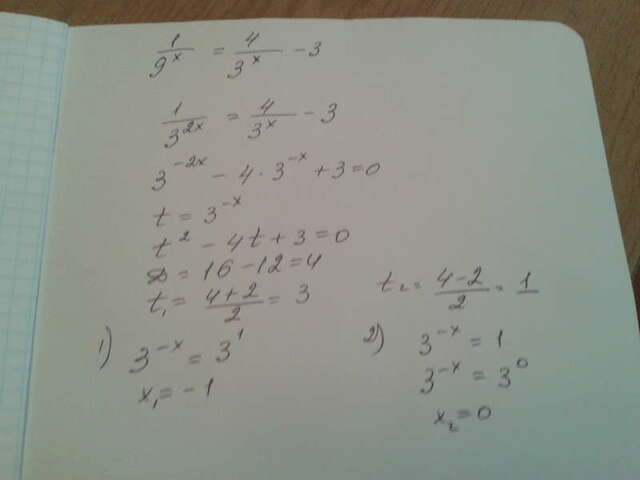 1/9^x = 4/3^x - 3
1/3^2x = 4/3^x - 3
3^-2x - 4 · 3^-x + 3 = 0
t = 3^-x
t^2 - 4t + 3 = 0
D = 16 - 12 = 4
t₁ = (4+2)/2 = 3
t₂ = (4-2)/2 = 1
1) 3^-x = 3^1
x₁ = -1
2) 3^-x = 1
3^-x = 3^0
x₂ = 0